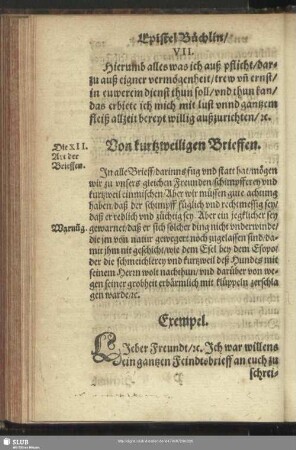 Epistel Büchlin/
VII.
Hierumb alles was ich auß pflicht/dar-
zu auß eigner vermögenheit/trew vñ ernst/
in euwerem dienst thun soll/vnd thun kan/
das erbiete ich mich mit lust vnnd gantzem
fleiß allzeit bereyt willig außzurichten/ꝛc.
Die XII.
Art der
Brieffen.
Von kurtzweiligen Brieffen.
In alle Brieff/darinn fůg vnd statt hat/mögen
wir zu vnsers gleichen Freunden schimpffrey vnd
kurtzweil einmischen/Aber wir müssen gut achtung
haben/daß der schimpff füglich vnd rechtmessig sey/
daß er redlich vnd züchtig sey. Aber ein jegklicher sey
Warnũg.
gewarnet/daß er sich sölcher ding nicht vnderwinde/
die jm von natur geweyget noch zugelassen sind/da-
mit jhm nit geschicht/wie dem Esel bey dem Esopo/
der die schmeichlerey vnd kurtzweil deß Hundes mit
seinem Herrn wolt nachthun/vnd darüber von we-
gen seiner grobheit erbärmlich mit klüpplen zerschla
gen warde/ꝛc.
Exempel.
Lieber Freundt/ꝛc. Ich war willens
ein gantzen Feindtsbrieff an euch zu
schrei-
SLUB